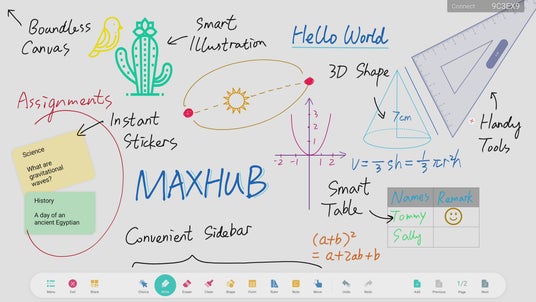 Connect 9C3EX9
Boundless
Canvas
Smart
Illustration
Hello World
3D Shape
7cm
Handy
Tools
Assignments
Instant
Stickers
Science
What are
gravitational
waves?
History
A day of an
ancient Egyptian
MAXHUB
3
2
1
-2 -1 1 2
V = 1/3 sh = 1/3 πr²h
Smart
Table
Names Remark
Tommy
Sally
Convenient Sidebar
(a+b)²
= a+2ab+b
Menu Exit Share Choose Write Eraser Clear Shape Form Ruler Note More Undo Redo Add Previous 1/2 Page Next